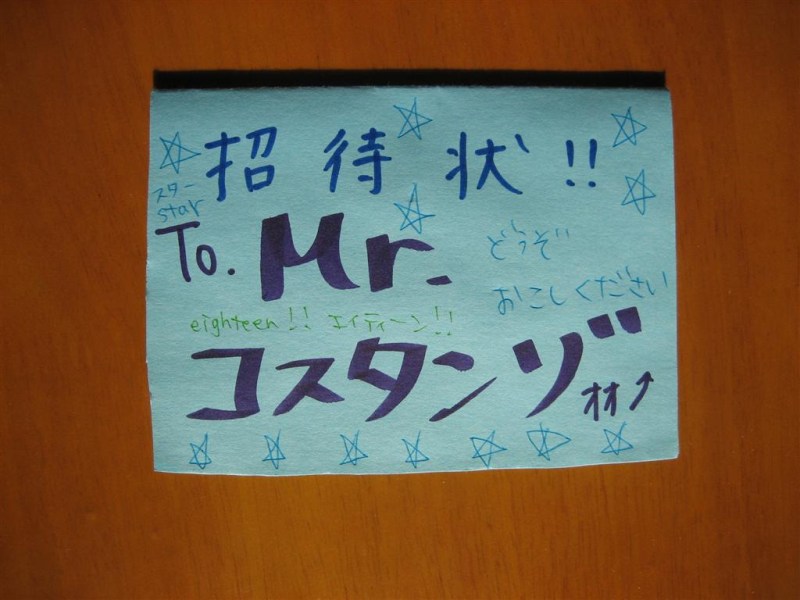 招待状!!
スター
star
To. Mr.
どうぞ
おこしください
eighteen!! エイティーン!!
コスタンゾオオ↗